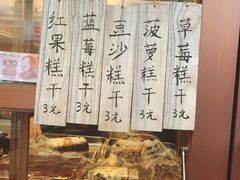 红果糕干
3元
蓝莓糕干
3元
豆沙糕干
3元
菠萝糕干
3元
草莓糕干
3元